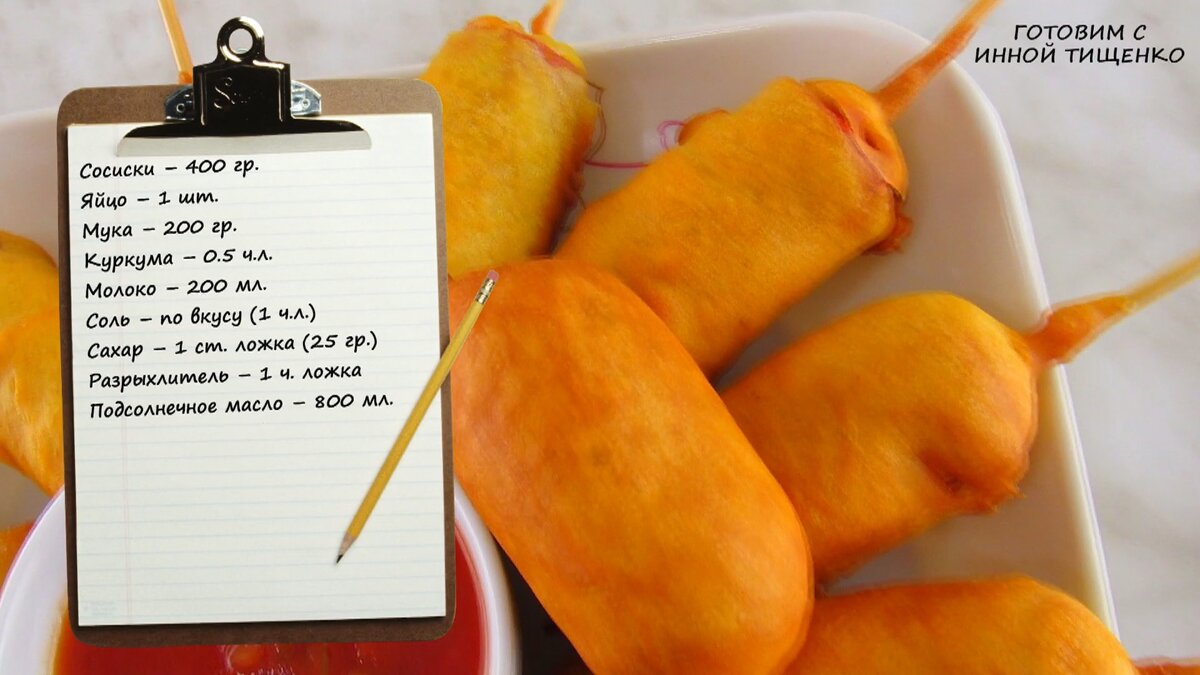 ГОТОВИМ С
ИННОЙ ТИЩЕНКО
Сосиски – 400 гр.
Яйцо – 1 шт.
Мука – 200 гр.
Куркума – 0.5 ч.л.
Молоко – 200 мл.
Соль – по вкусу (1 ч.л.)
Сахар – 1 ст. ложка (25 гр.)
Разрыхлитель – 1 ч. ложка
Подсолнечное масло – 800 мл.